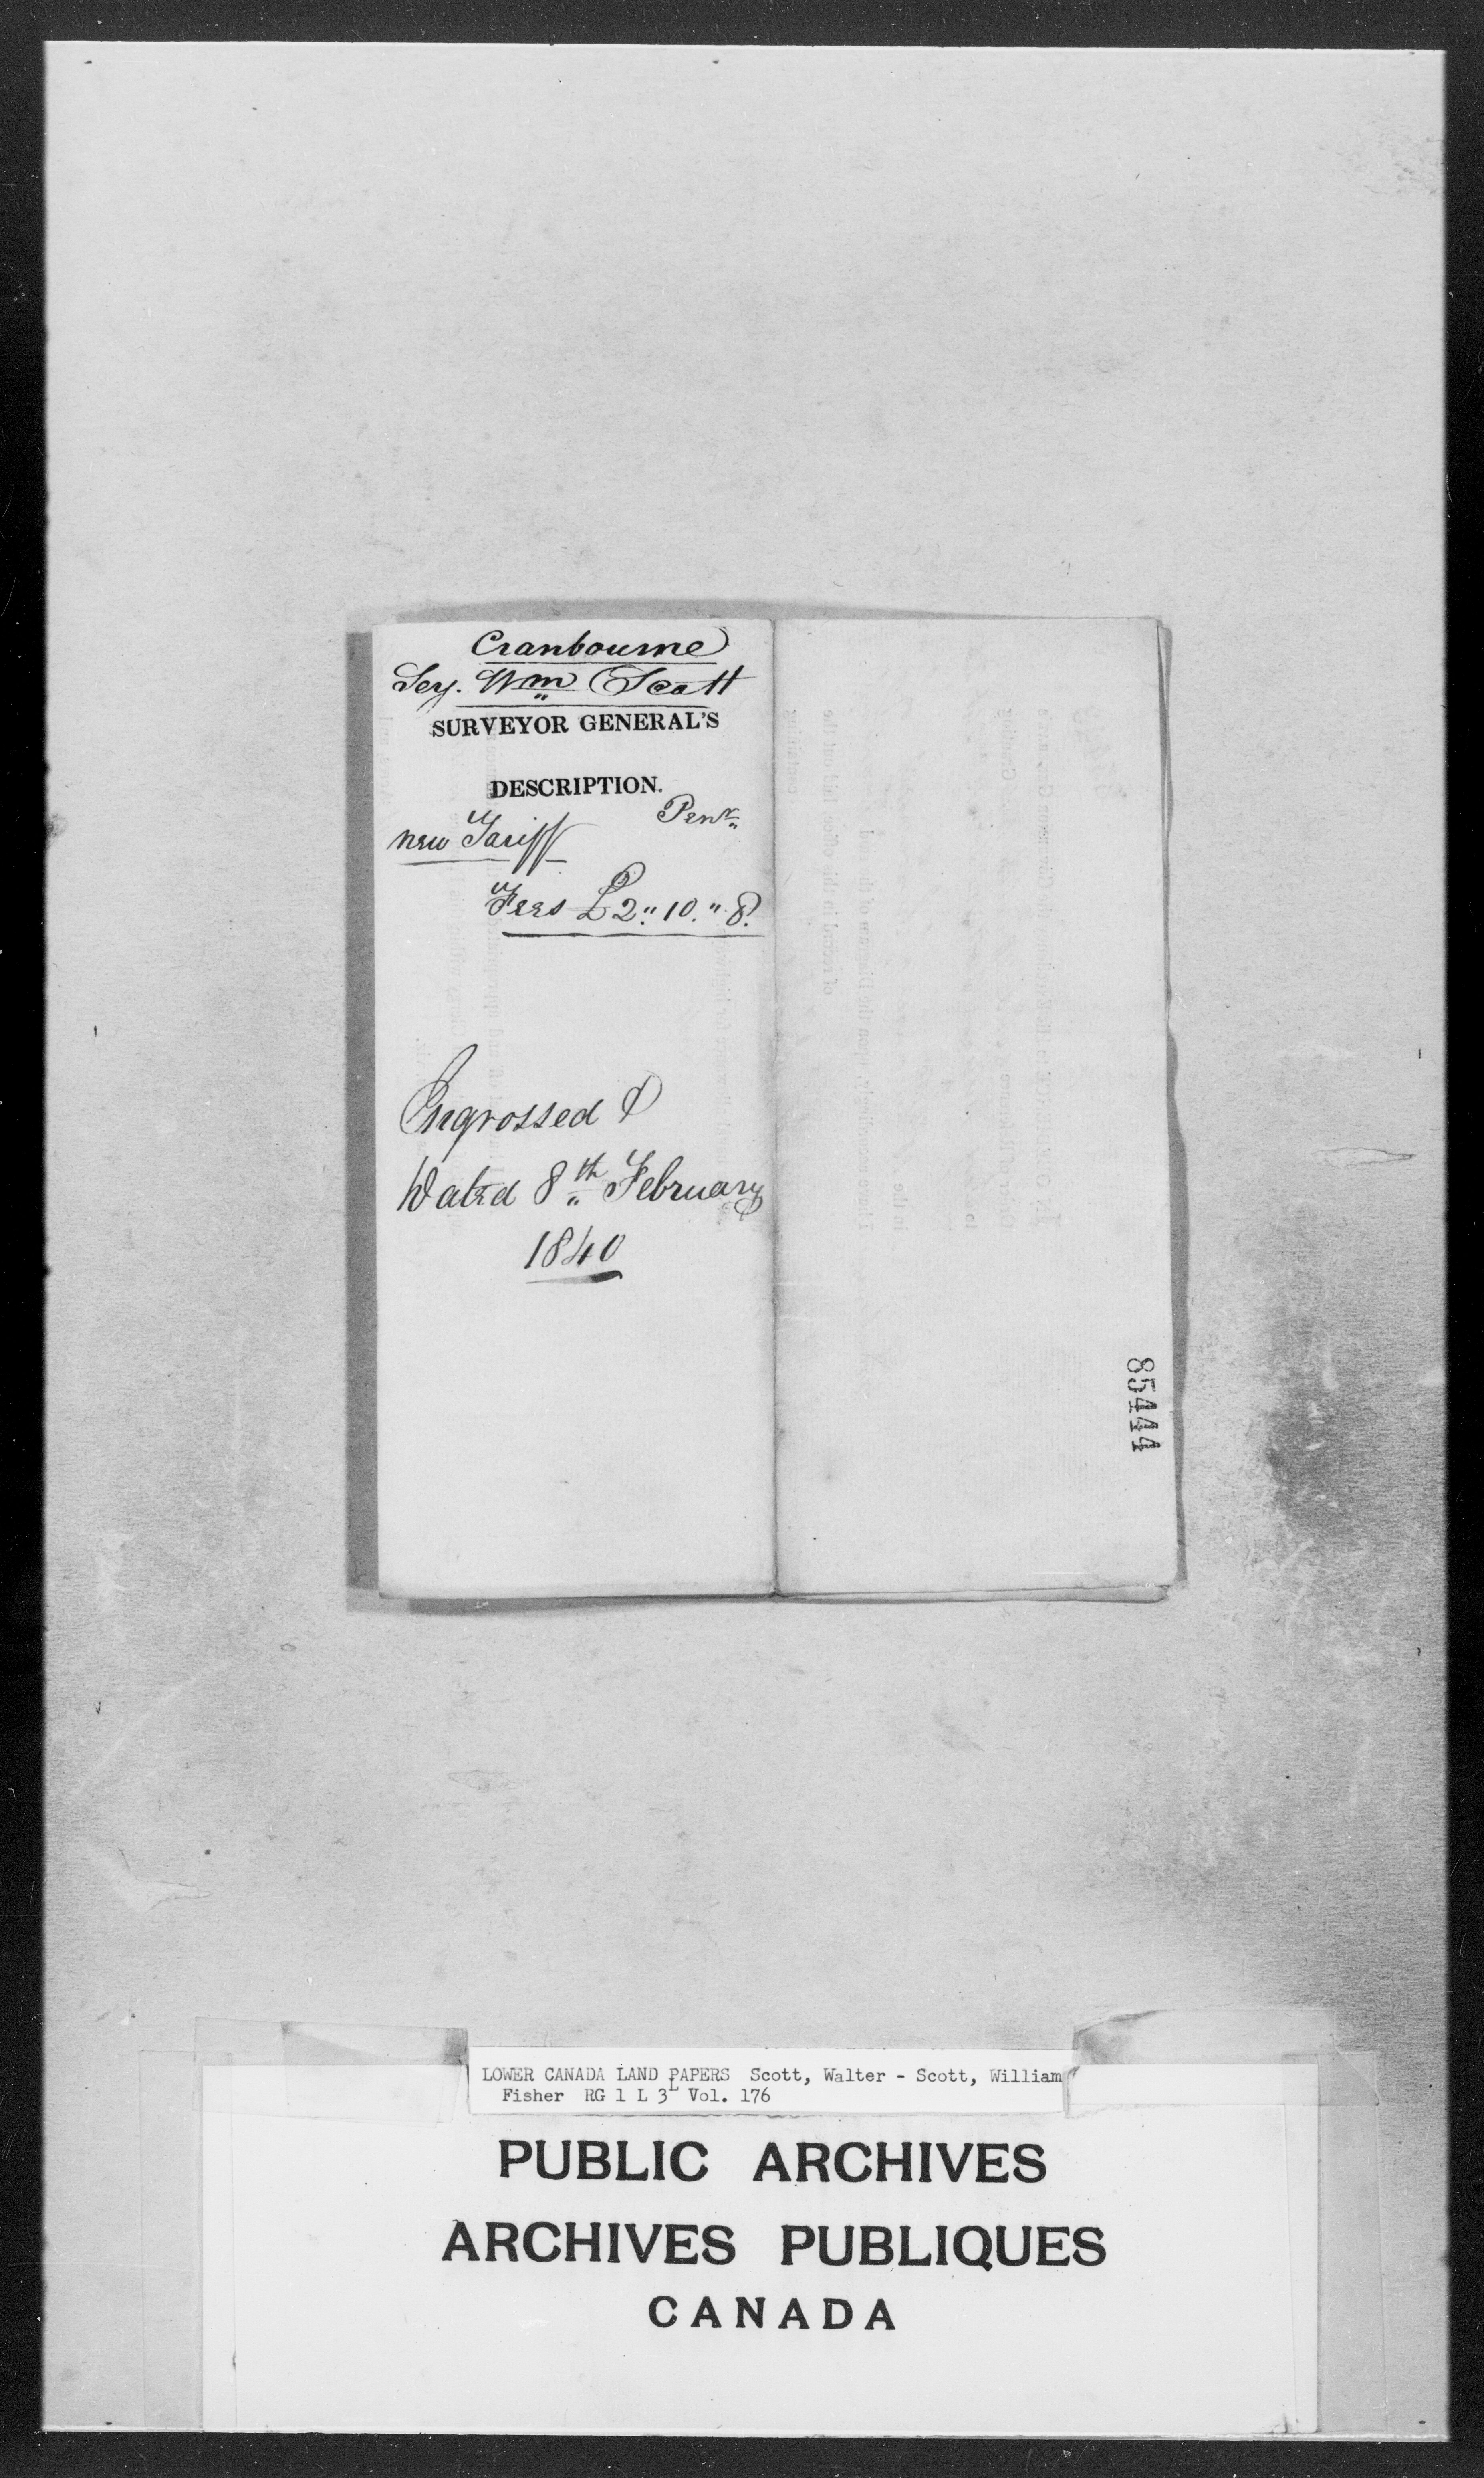 Cranbourne
Serj. Wm Scott
SURVEYOR GENERAL'S
DESCRIPTION.
Penr.
new Tariff
Fees £2.. 10.. 8.
Engrossed &
Dated 8th February
1840
85444
LOWER CANADA LAND PAPERS Scott, Walter - Scott, William
Fisher RG 1 L 3L Vol. 176
PUBLIC ARCHIVES
ARCHIVES PUBLIQUES
CANADA